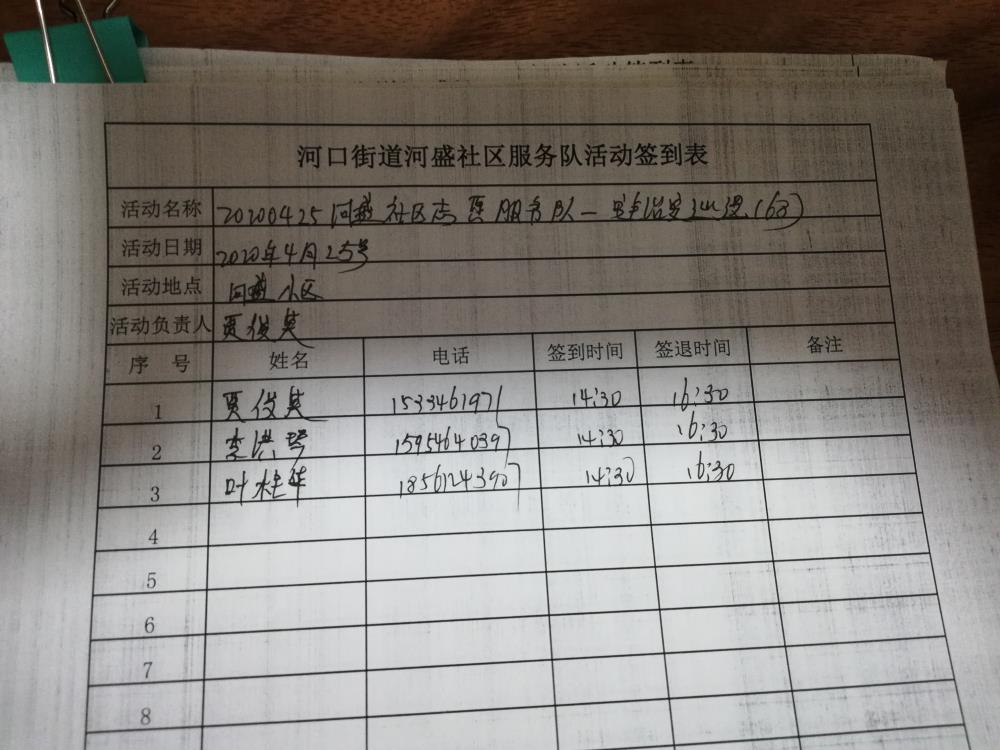 河口街道河盛社区服务队活动签到表
活动名称 20200425河盛社区志愿服务队一 (63)
活动日期 2020年4月25号
活动地点 河盛小区
活动负责人 贾俊英
序 号 姓名 电话 签到时间 签退时间 备注
1 贾俊英 1533461971 14:30 16:30
2 李洪琴 15954640397 14:30 16:30
3 叶桂华 18561243907 14:30 16:30
4
5
6
7
8